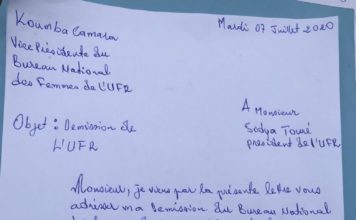 Koumba Camara
Mardi 07 Juillet 2020
Vice Présidente du
Bureau National
des Femmes de L'UFR
A Monsieur
Sidya Touré
président de l'UFR
Objet : Demission de
L'UFR
Monsieur, je viens par la présente lettre vous
adresser ma Demission du Bureau National